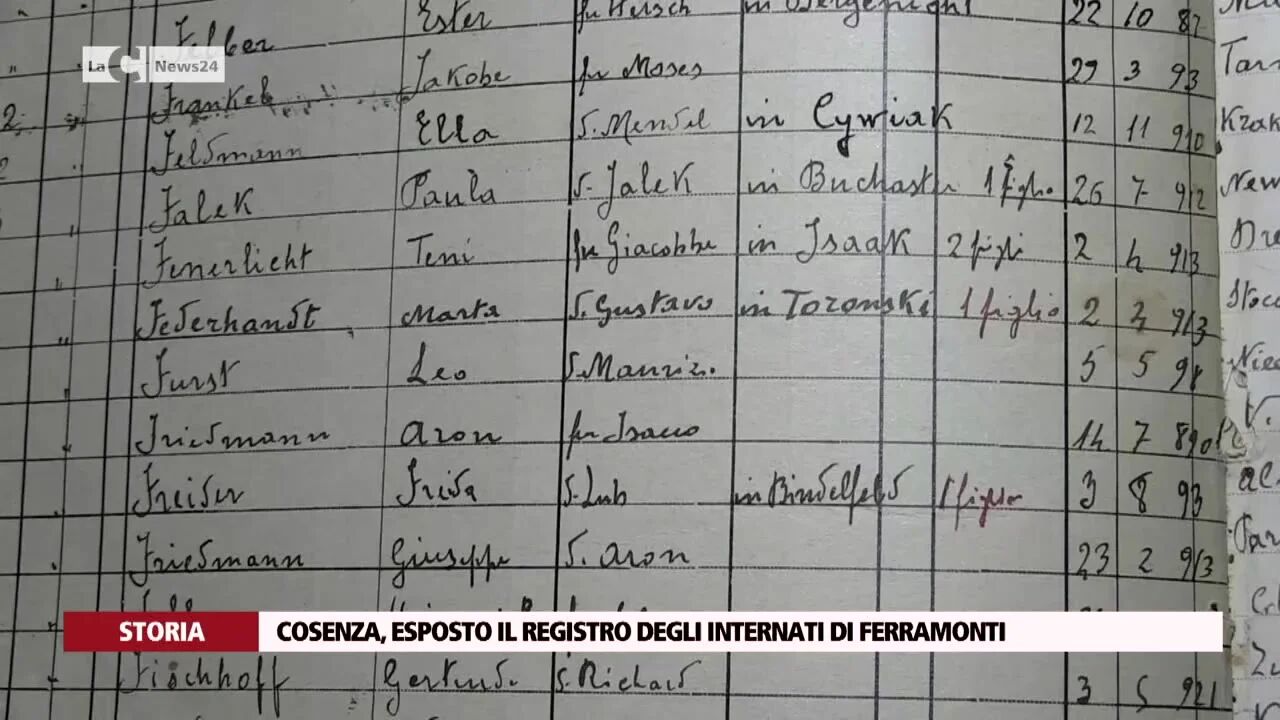 Felber Ester fu Hersch in 22 10 82
La C News24
Frankel Jakobe fu Moses 29 3 93 Tar
2 Feldmann Ella d. Mendel in Cywiak 12 11 910 Krak
Falek Paula d. Jalek in 1 figlio 26 7 912 New
Fenerlicht Teni fu Giacobbe in Isaak 2 figli 2 4 913 Dre
Federhandt Marta d. Gustavo in Toronski 1 figlio 2 3 913 Stoc
Furst Leo d. Mauriz. 5 5 Nie
Friedmann Aron fu Isacco 14 7 890 V.
Freider Frida d. in Bindelfeld 1 figlio 3 8 93 al
Friedmann Giuseppe d. Aron 23 2 913 Par
STORIA COSENZA, ESPOSTO IL REGISTRO DEGLI INTERNATI DI FERRAMONTI
Fischhoff Gertrud. d. Richard 3 5 921